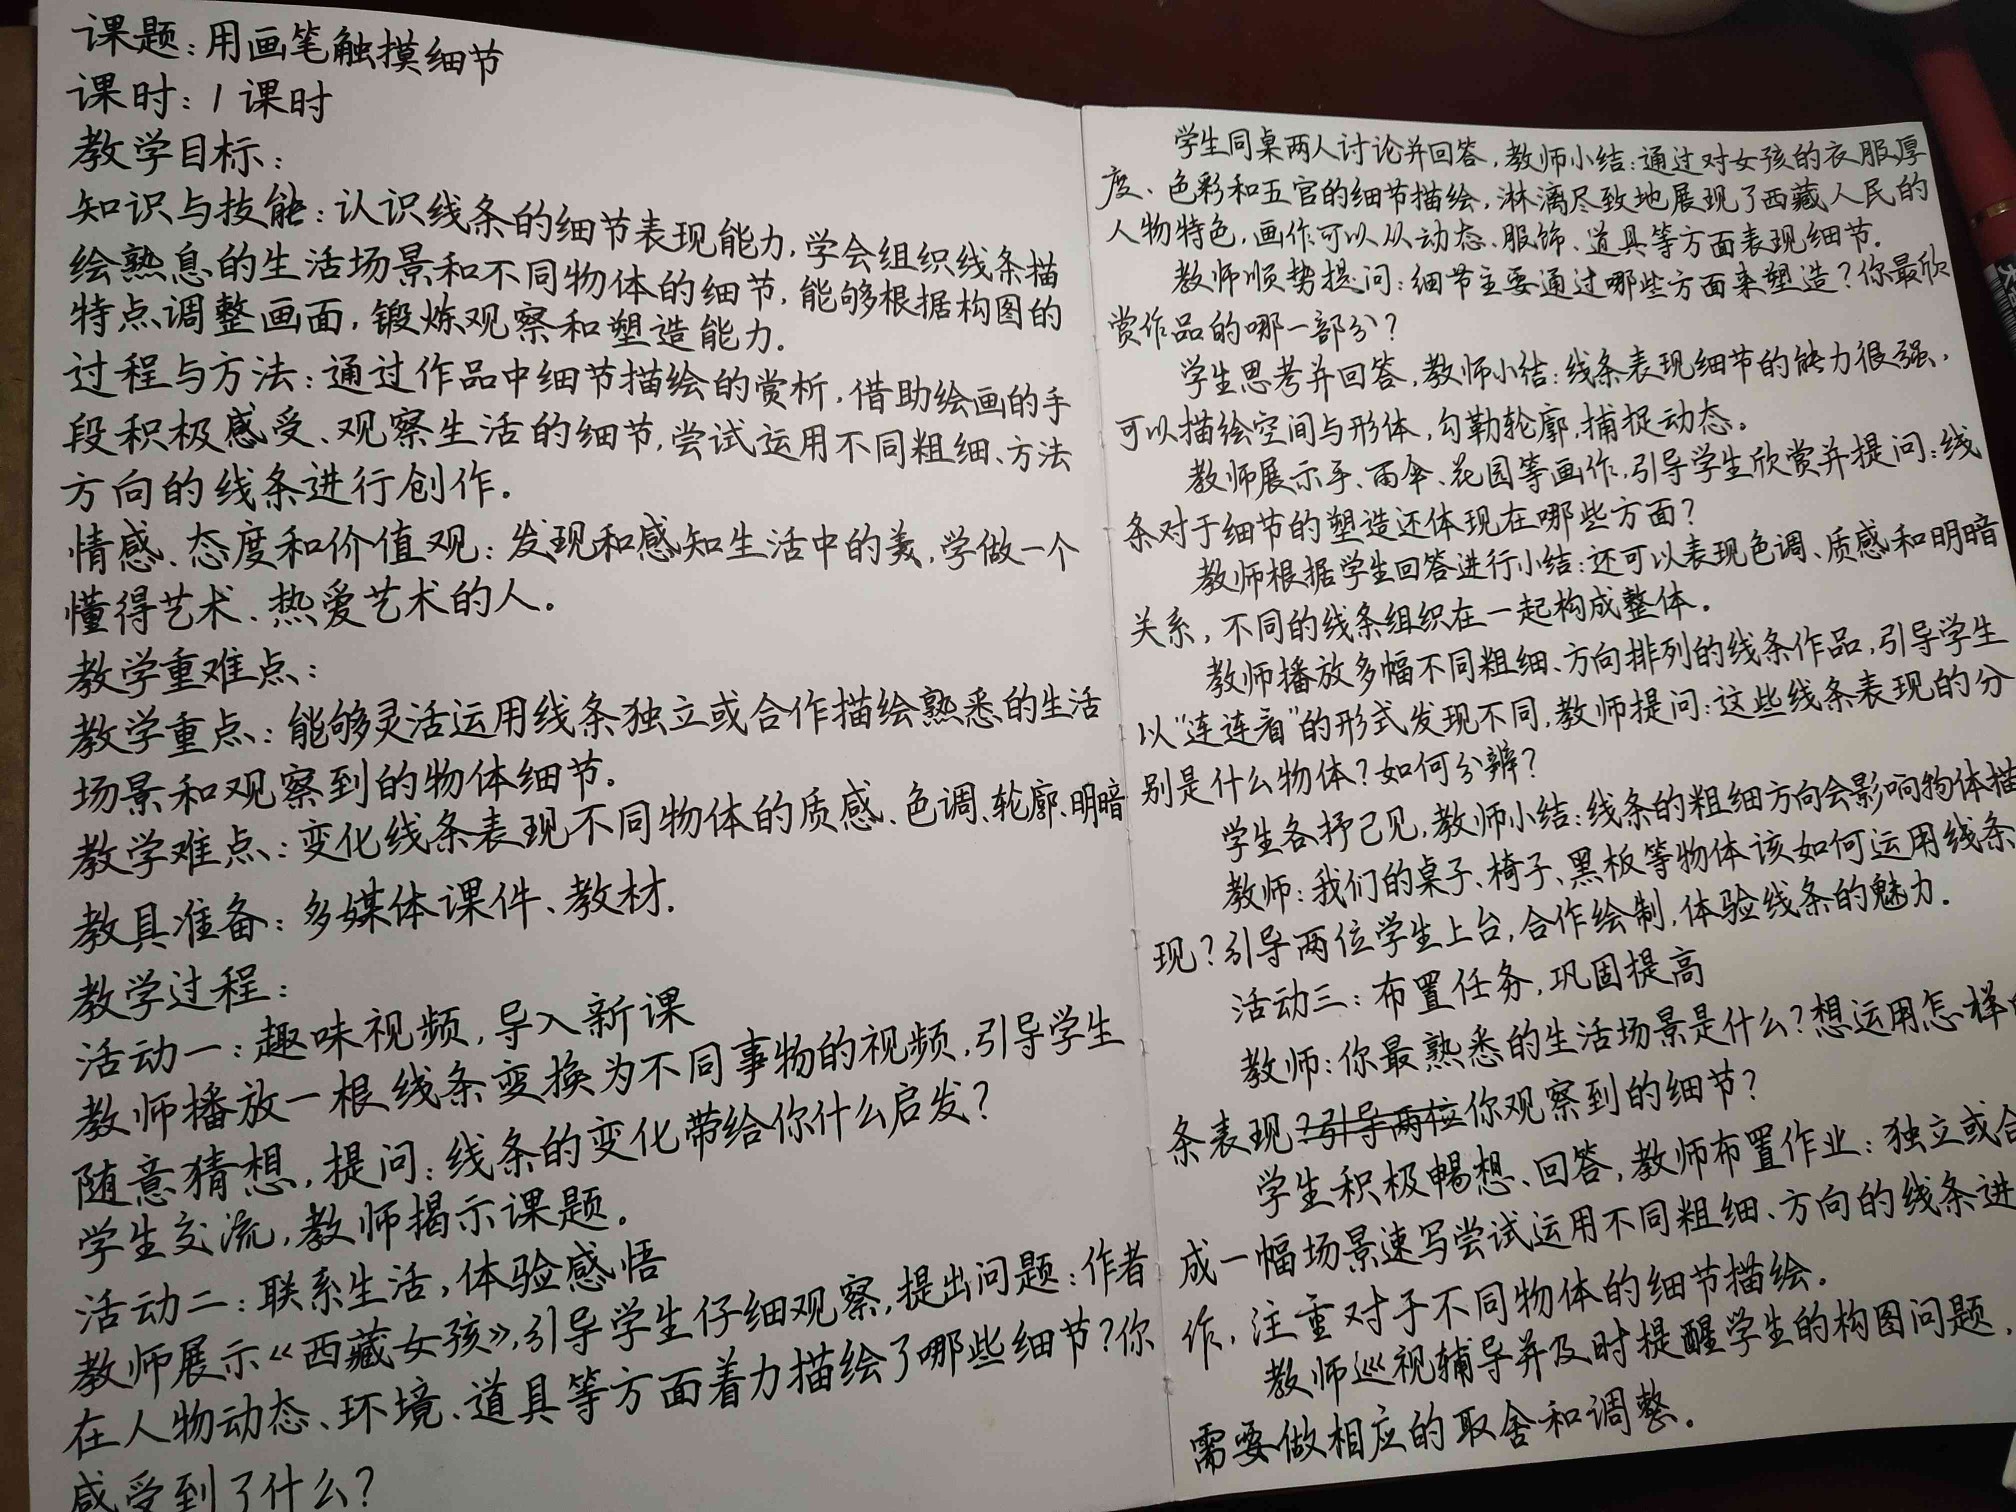 课题：用画笔触摸细节
课时：1课时
教学目标：
知识与技能：认识线条的细节表现能力，学会组织线条描
绘熟息的生活场景和不同物体的细节，能够根据构图的
特点调整画面，锻炼观察和塑造能力。
过程与方法：通过作品中细节描绘的赏析，借助绘画的手
段积极感受、观察生活的细节，尝试运用不同粗细、方法
方向的线条进行创作。
情感、态度和价值观：发现和感知生活中的美，学做一个
懂得艺术、热爱艺术的人。
教学重难点：
教学重点：能够灵活运用线条独立或合作描绘熟悉的生活
场景和观察到的物体细节。
教学难点：变化线条表现不同物体的质感、色调、轮廓、明暗
教具准备：多媒体课件、教材．
教学过程：
活动一：趣味视频，导入新课
教师播放一根线条变换为不同事物的视频，引导学生
随意猜想，提问：线条的变化带给你什么启发？
学生交流，教师揭示课题。
活动二：联系生活，体验感悟
教师展示《西藏女孩》，引导学生仔细观察，提出问题：作者
在人物动态、环境、道具等方面着力描绘了哪些细节？你
感受到了什么？
学生同桌两人讨论并回答，教师小结：通过对女孩的衣服厚
度、色彩和五官的细节描绘，淋漓尽致地展现了西藏人民的
人物特色，画作可以从动态、服饰、道具等方面表现细节。
教师顺势提问：细节主要通过哪些方面来塑造？你最欣
赏作品的哪一部分？
学生思考并回答，教师小结：线条表现细节的能力很强，
可以描绘空间与形体，勾勒轮廓，捕捉动态。
教师展示手、雨伞、花园等画作，引导学生欣赏并提问：线
条对于细节的塑造还体现在哪些方面？
教师根据学生回答进行小结：还可以表现色调、质感和明暗
关系，不同的线条组织在一起构成整体。
教师播放多幅不同粗细、方向排列的线条作品，引导学生
以“连连看”的形式发现不同，教师提问：这些线条表现的分
别是什么物体？如何分辨？
学生各抒己见，教师小结：线条的粗细方向会影响物体描
教师：我们的桌子、椅子、黑板等物体该如何运用线条
现？引导两位学生上台，合作绘制，体验线条的魅力．
活动三：布置任务，巩固提高
教师：你最熟悉的生活场景是什么？想运用怎样
条表现？引导两位你观察到的细节？
学生积极畅想、回答，教师布置作业：独立或合
成一幅场景速写尝试运用不同粗细、方向的线条进
作，注重对于不同物体的细节描绘．
教师巡视辅导并及时提醒学生的构图问题，
需要做相应的取舍和调整。